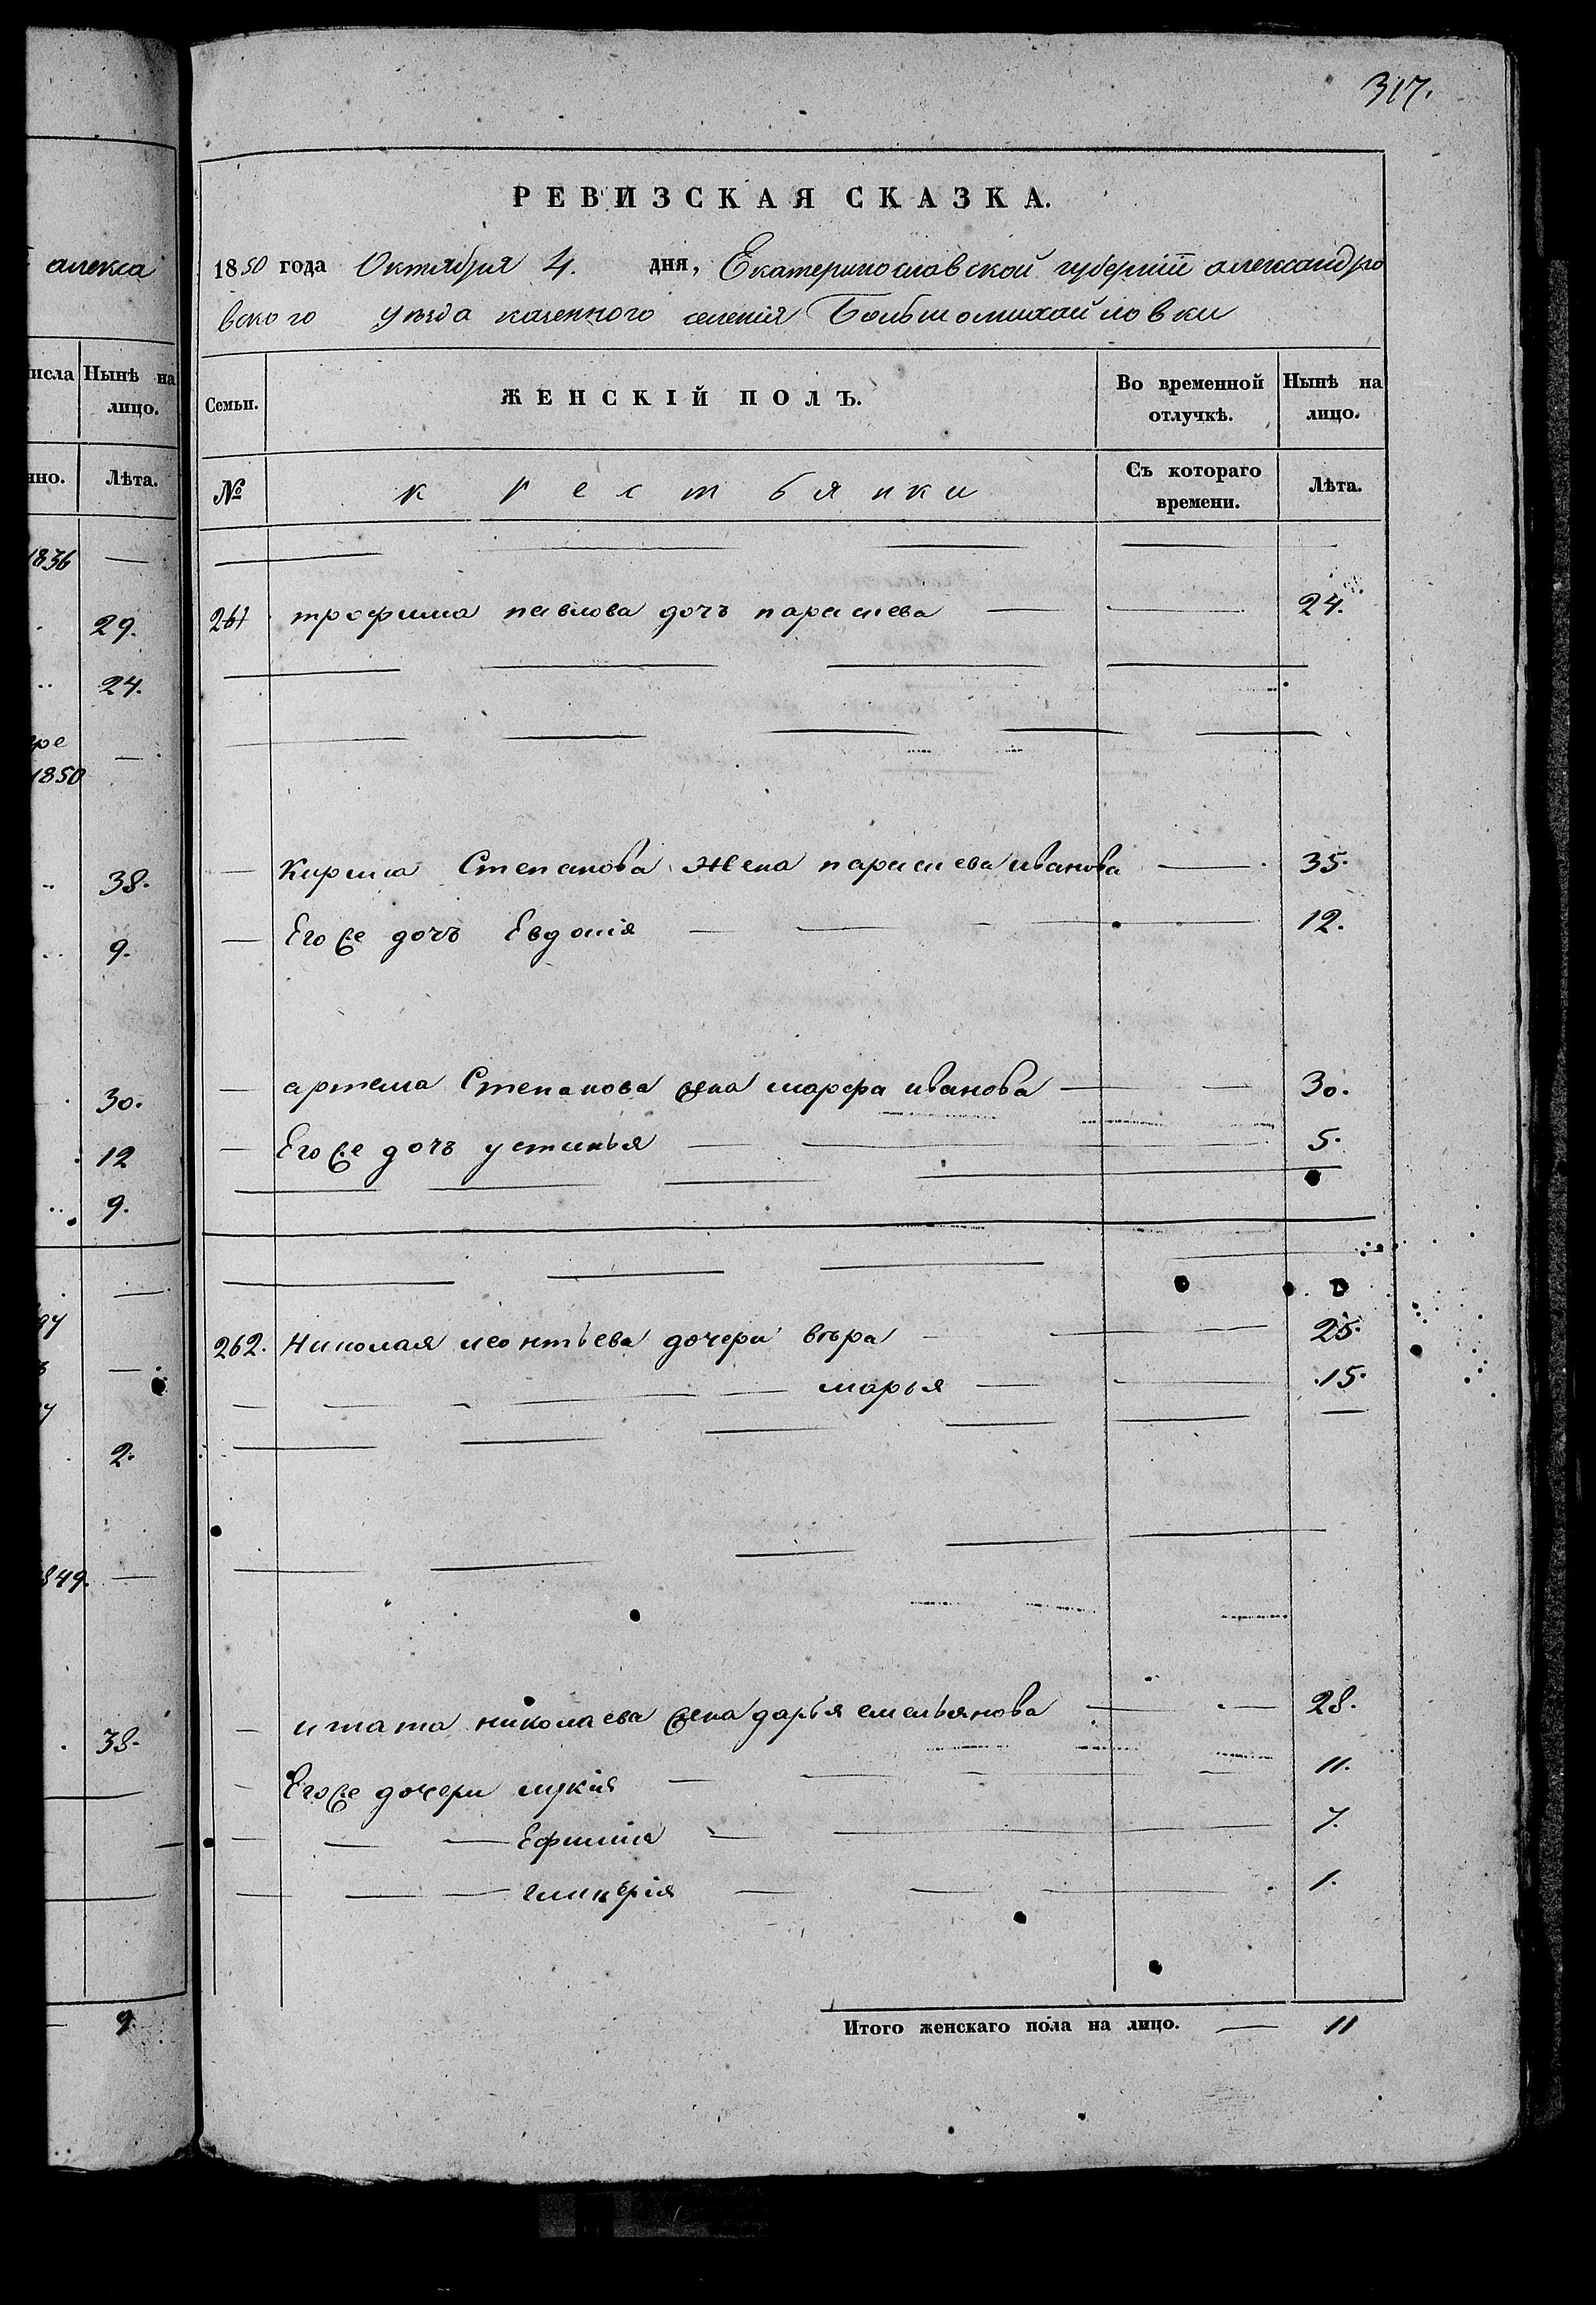 317.
РЕВИЗСКАЯ СКАЗКА.
1850 года Октября 4. дня, Екатеринославской губернiи александро
вского уезда казенного селенiя Большомихайловки
алекса
исла Нынѣ на лицо.
нно. Лѣта.
Семьи. ЖЕНСКІЙ ПОЛЪ. Во временной отлучкѣ. Нынѣ на лицо.
№ крестьянки Съ котораго времени. Лѣта.
1836 —
29.
24.
ре
1850 —
38.
9.
30.
12
9.
2.
849. —
38.
9.
261 трофима павлова дочь парасиева — 24.
— Кирила Степанова Жена парасиева иванова — 35.
— Его же дочь Евдокiя — 12.
— артема Степанова жена марфа иванова — 30.
— Его же дочь устинья — 5.
262. Николая леонтьева дочери вѣра — 25.
— марья — 15.
— николаева жена дарья емельянова — 28.
— Его же дочери лукiя — 11.
— Ефимiа — 7.
— гликерiя — 1.
Итого женскаго пола на лицо. — 11